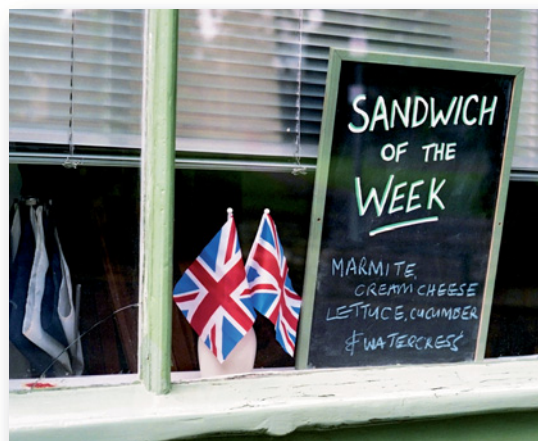 SANDWICH
OF THE
WEEK
MARMITE,
CREAM CHEESE
LETTUCE, CUCUMBER
& WATERCRESS